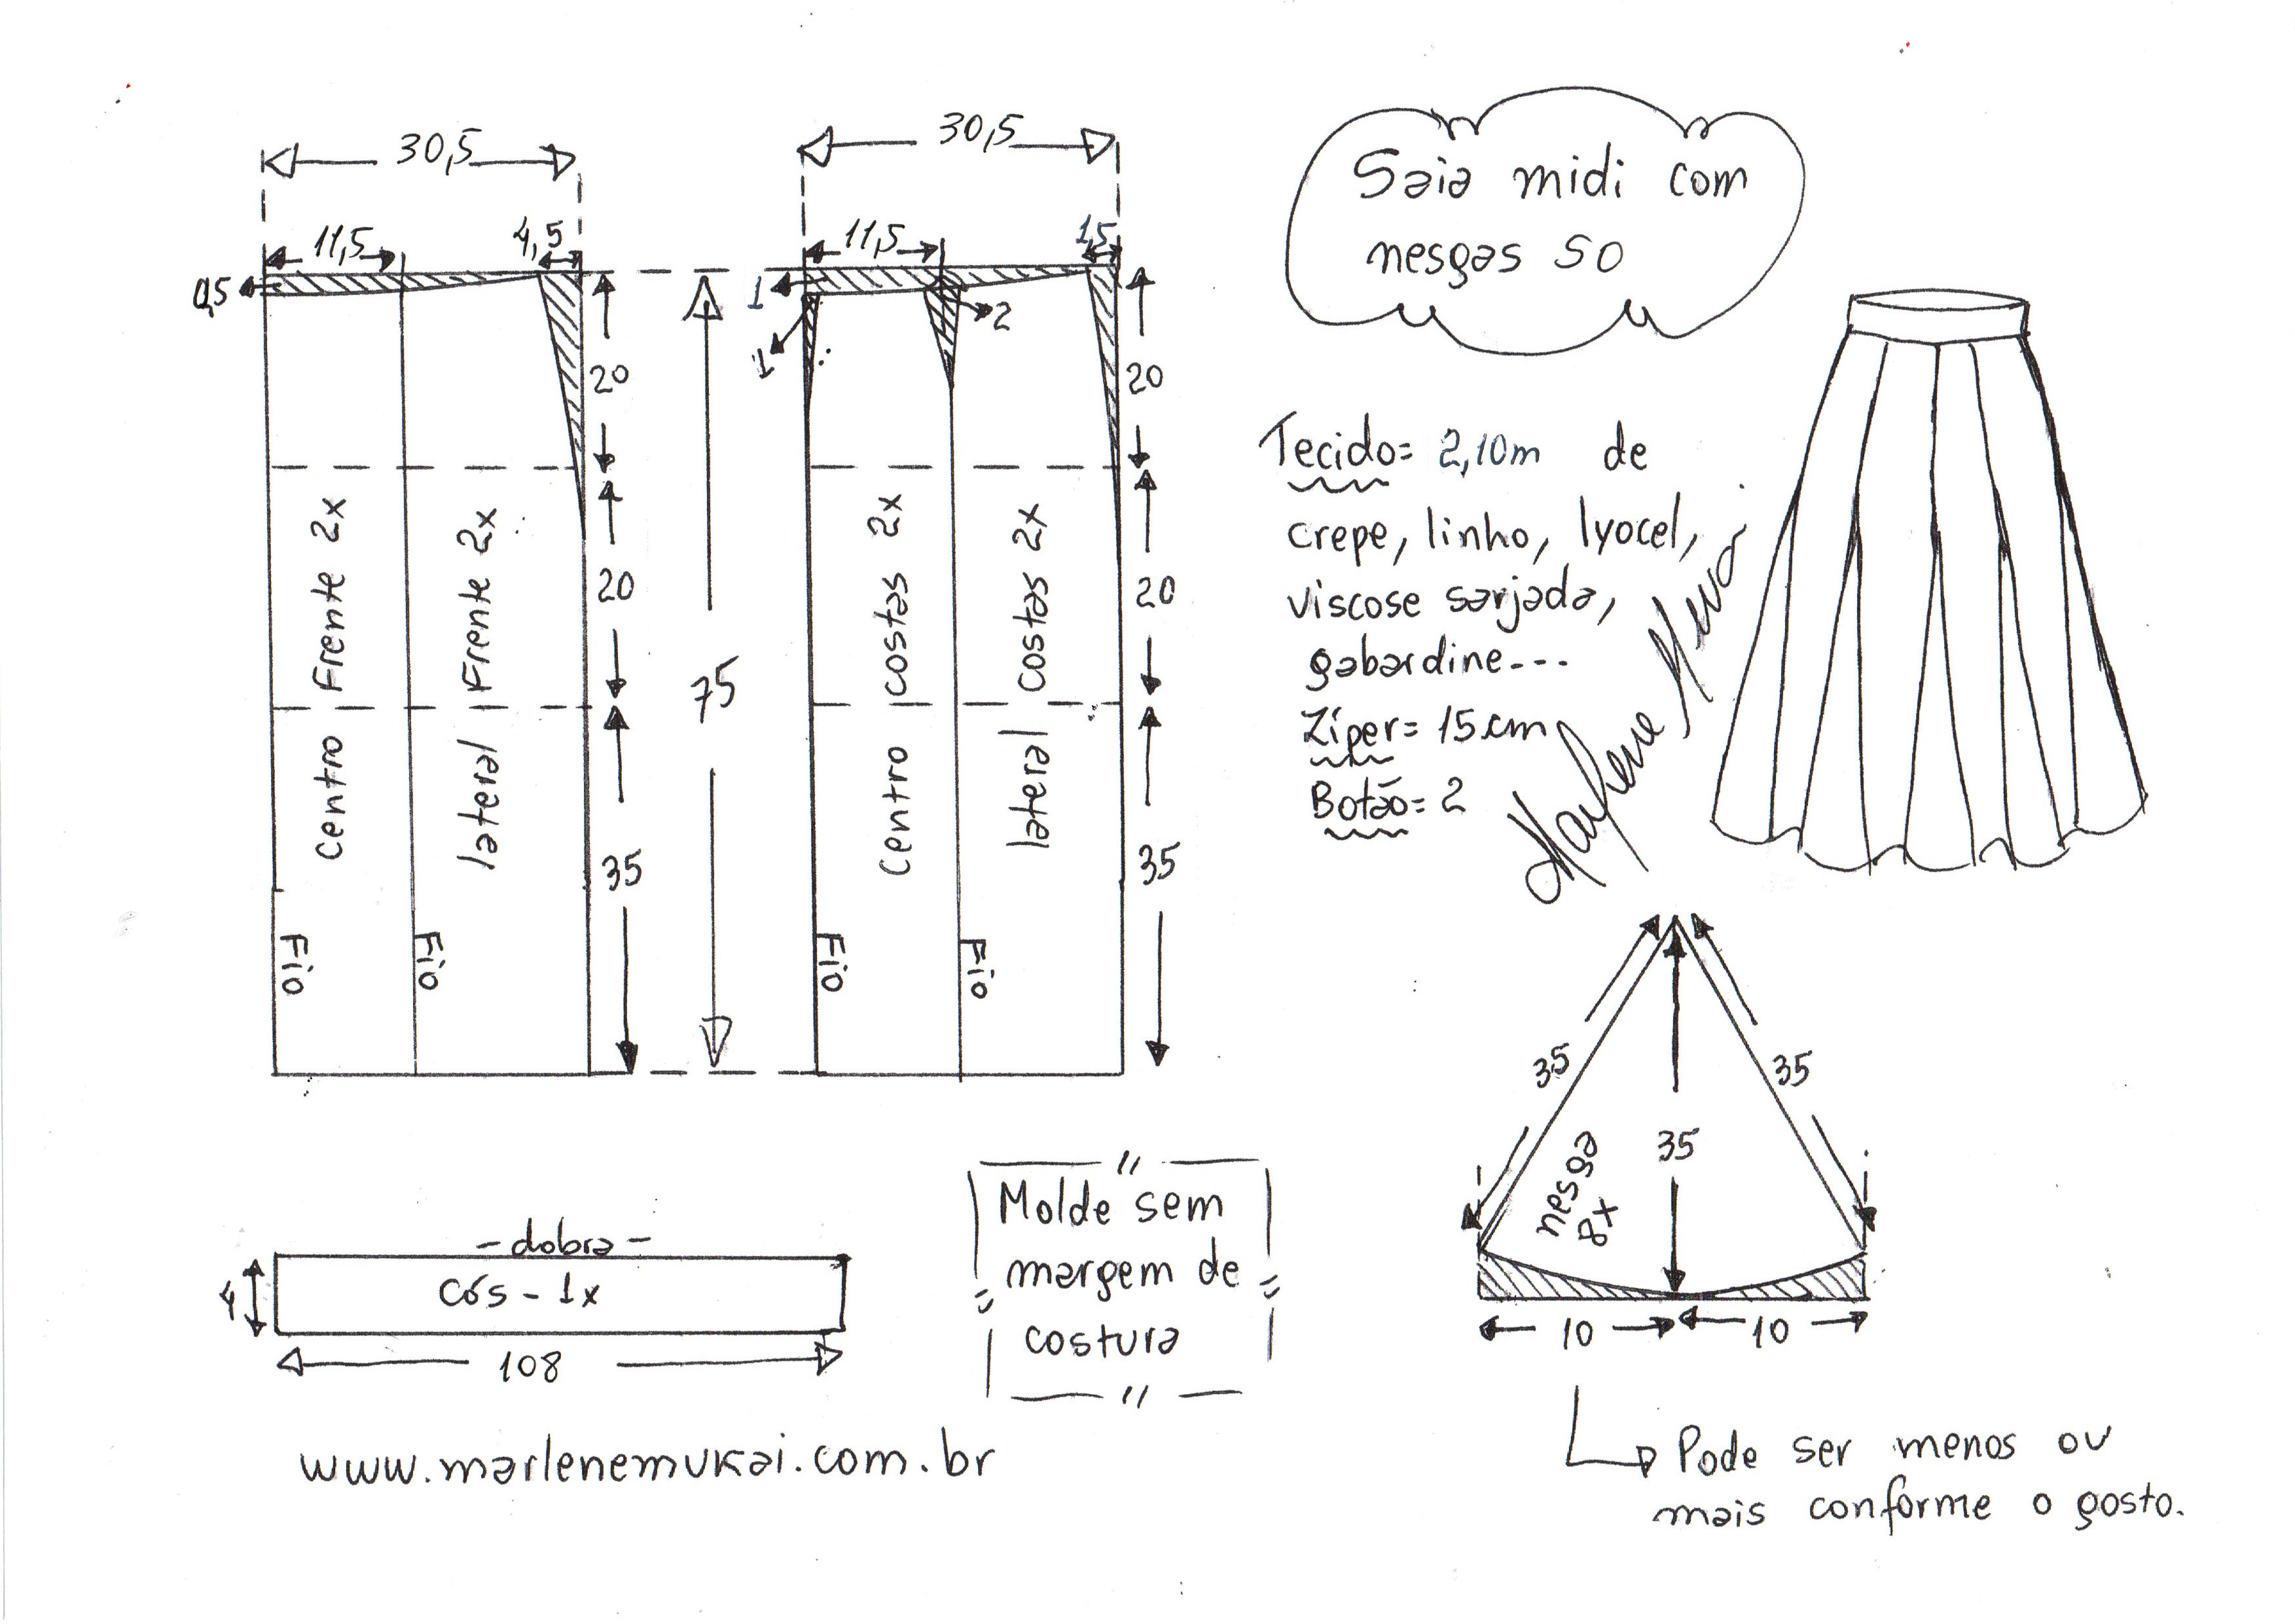 30,5
30,5
11,5
4,5
11,5
1,5
0,5
1
1
2
20
20
20
20
35
35
75
Centro Frente 2x
lateral Frente 2x
centro costas 2x
lateral costas 2x
Fio
Fio
Fio
Fio
Saia midi com
nesgas 50
Tecido= 2,10m de
crepe, linho, lyocel,
viscose sarjada,
gabardine---
Zíper= 15 cm
Botão= 2
35
35
35
nesga
8x
10
10
Pode ser menos ou
mais conforme o gosto.
- dobra -
cós - 1x
4
108
Molde sem
margem de
costura
www.marlenemukai.com.br